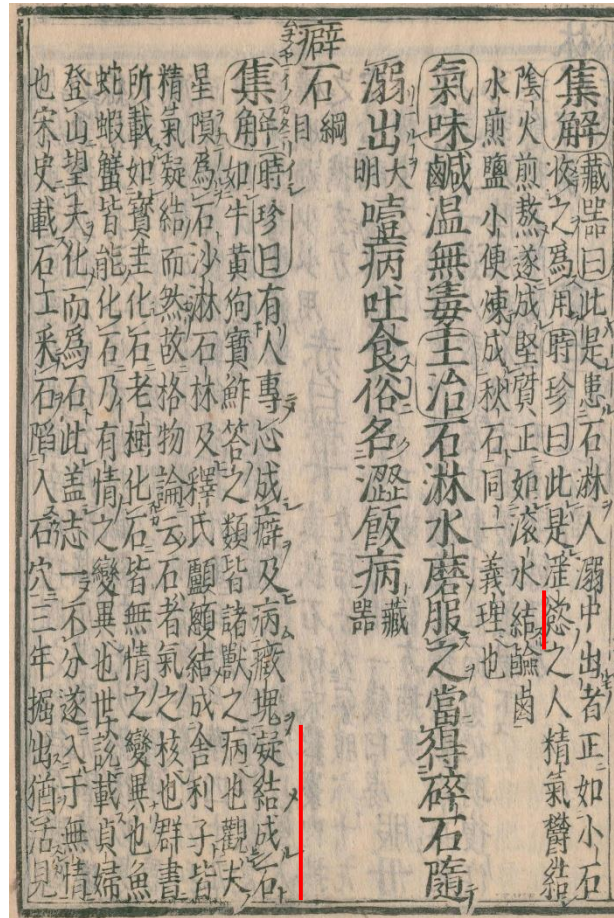 集解藏器曰此是患石淋人溺中出者正如小石
收之爲用時珍曰此是淫慾之人精氣鬱結
陰火煎熬遂成堅質正如滾水結鹼鹵
水煎鹽小便煉成秋石同一義理也
氣味鹹温無毒主治石淋水磨服之當得碎石隨
溺出大明噎病吐食俗名澀飯病藏器
癖石綱目
集解時珍曰有人專心成癖及病癥塊凝結成石
如牛黄狗寶鮓荅之類皆諸獸之病也觀夫
星隕爲石沙淋石林及釋氏顱顖結成舍利子皆
精氣凝結而然故格物論云石者氣之核也群書
所載如寶圭化石老樹化石皆無情之變異也魚
蛇蝦蟹皆能化石乃有情之變異也世説載貞婦
登山望夫化而爲石此盖志一不分遂入于無情
也宋史載石工采石陷入石穴三年掘出猶活見